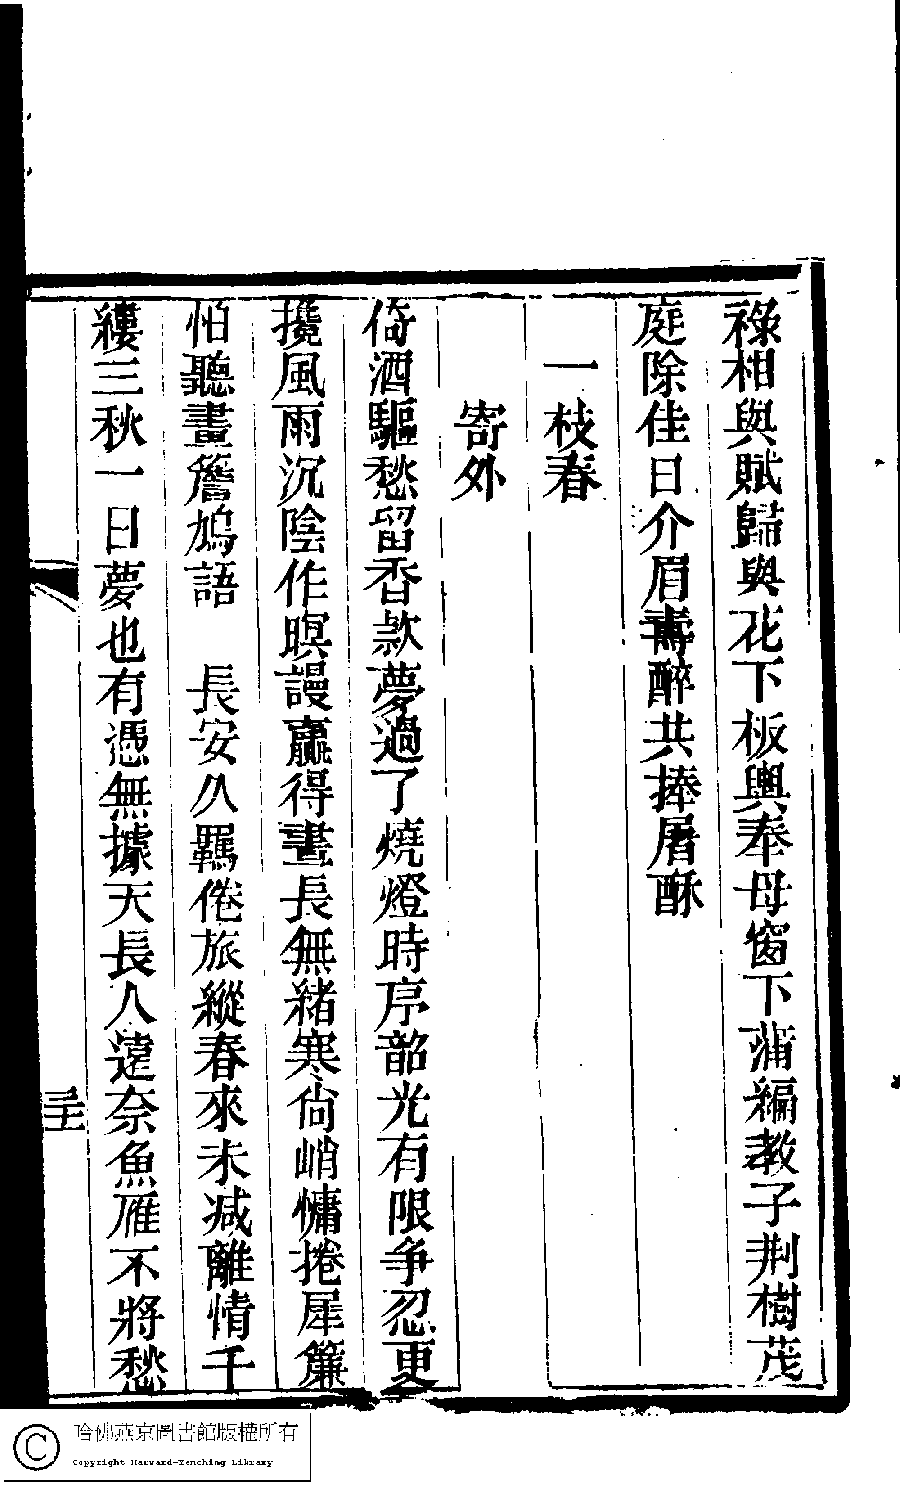 祿相與賦歸與花下板輿奉母窗下蒲編教子荆樹茂
庭除佳日介眉壽醉共捧屠酥
一枝春
寄外
倚酒驅愁留香款夢過了燒燈時序韶光有限爭忍更
攙風雨沉陰作暝謾贏得晝長無緒寒尙峭慵捲犀簾
怕聽畫簷鳩語　長安久羈倦旅縱春來未减離情千
縷三秋一日夢也有憑無據天長人遠奈魚雁不將愁
三十
哈佛燕京圖書館版權所有
Copyright Harvard-Yenching Library